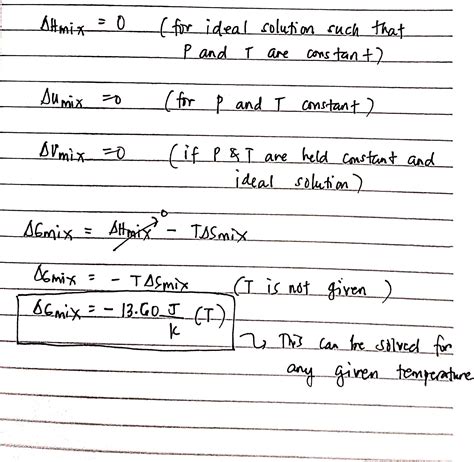 ΔHmix = 0 (for ideal solution such that
P and T are constant)
ΔUmix = 0 (for P and T constant)
ΔVmix = 0 (if P & T are held constant and
ideal solution)
ΔGmix = ΔHmix⁰ - TΔSmix
ΔGmix = - TΔSmix (T is not given)
ΔGmix = - 13.60 J/K (T)
↳ This can be solved for
any given temperature